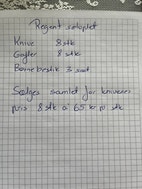 Regent sølvplet
Knive 8 stk
Gafler 8 stk
Børnebestik 3 sæt
Sælges samlet for kniverer
pris 8 stk a 65 kr pr stk